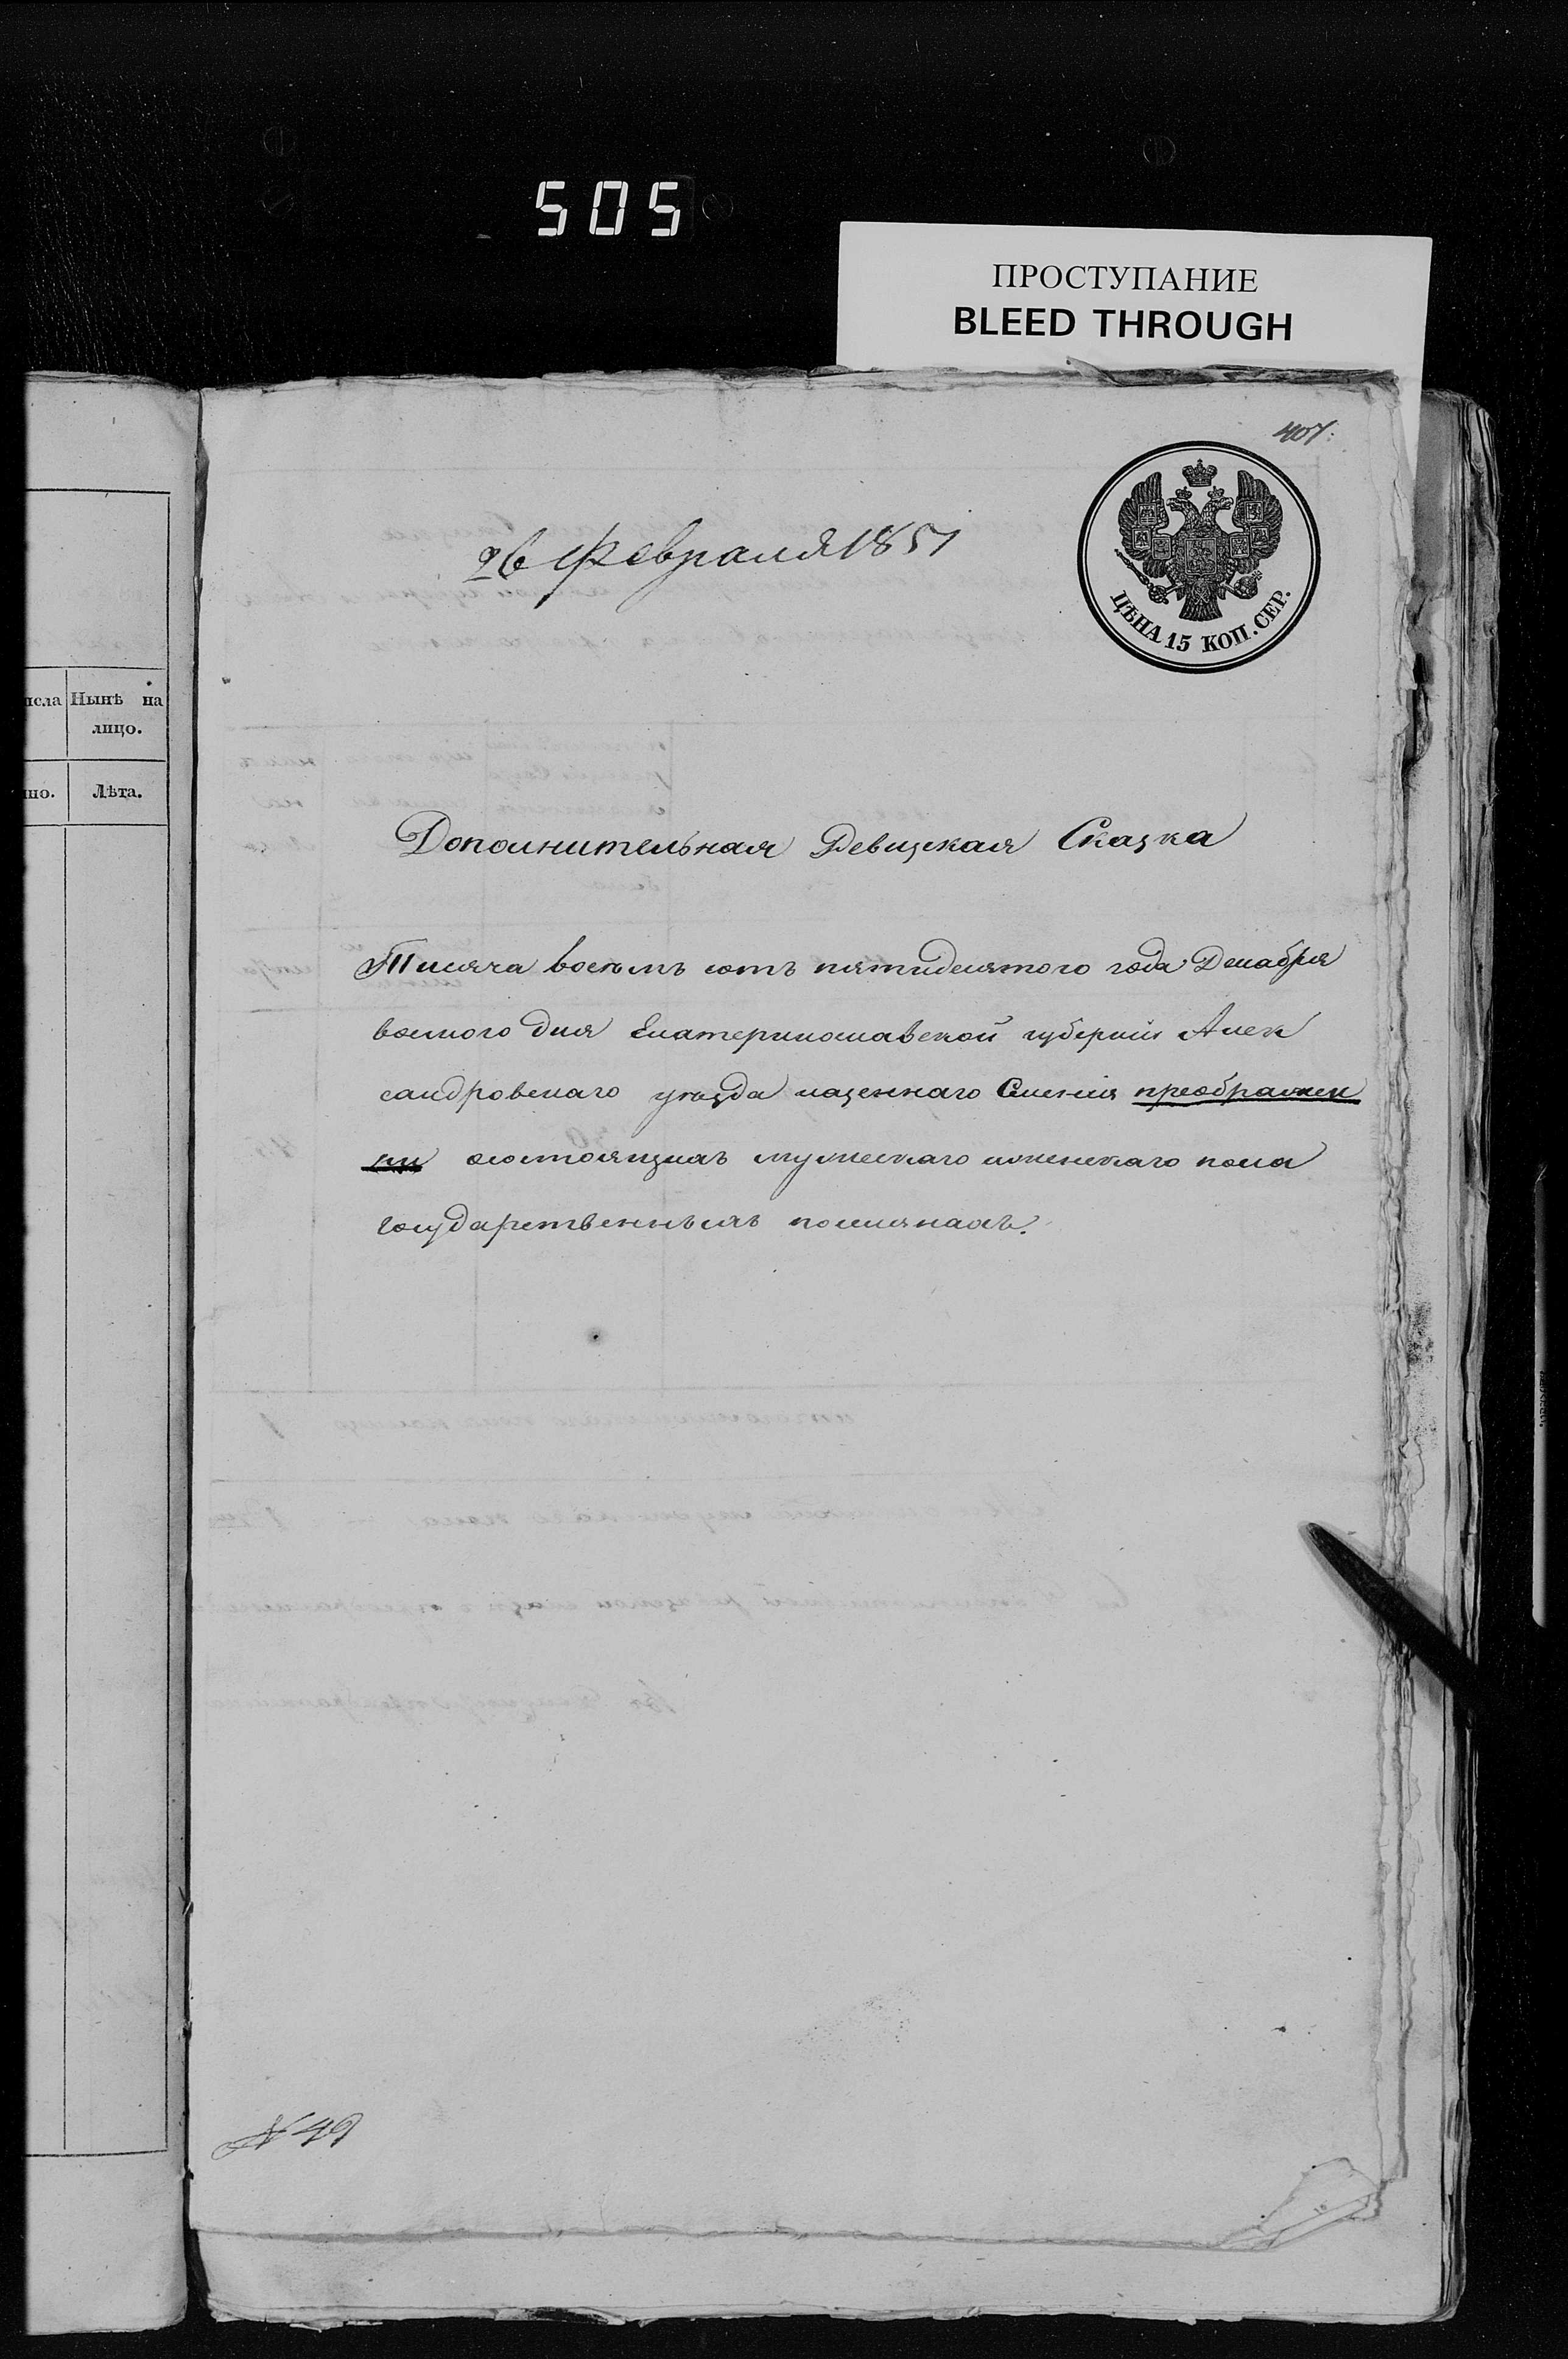 505
ПРОСТУПАНИЕ
BLEED THROUGH
407.
ЦѢНА 15 КОП. СЕР.
26 Февраля 1851
исла
Нынѣ на
лицо.
но.
Лѣта.
Дополнительная Ревизская Сказка
Тысяча восемь сотъ пятидесятого года Декабря
восмого дня Екатеринославской губерніи Алек
сандровскаго уѣзда казеннаго Селенія преображен
ки осостоящихъ мужескаго иженскаго пола
государственныхъ поселянахъ.
N 49